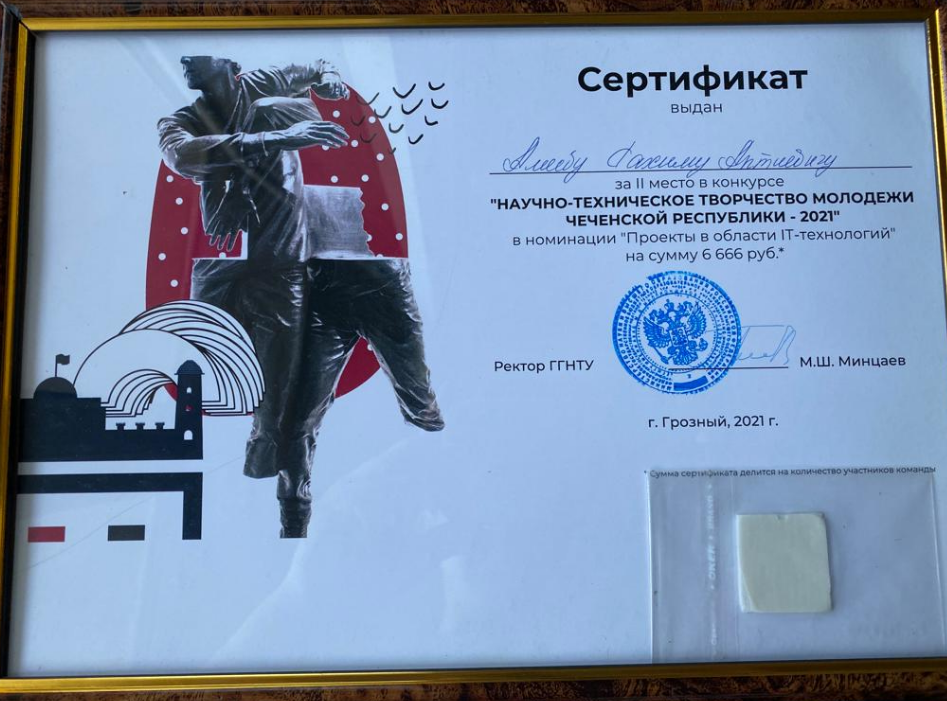 Сертификат
выдан
Рахиму
за II место в конкурсе
"НАУЧНО-ТЕХНИЧЕСКОЕ ТВОРЧЕСТВО МОЛОДЕЖИ
ЧЕЧЕНСКОЙ РЕСПУБЛИКИ - 2021"
в номинации "Проекты в области IT-технологий"
на сумму 6 666 руб.*
Ректор ГГНТУ
М.Ш. Минцаев
г. Грозный, 2021 г.
* Сумма сертификата делится на количество участников команды